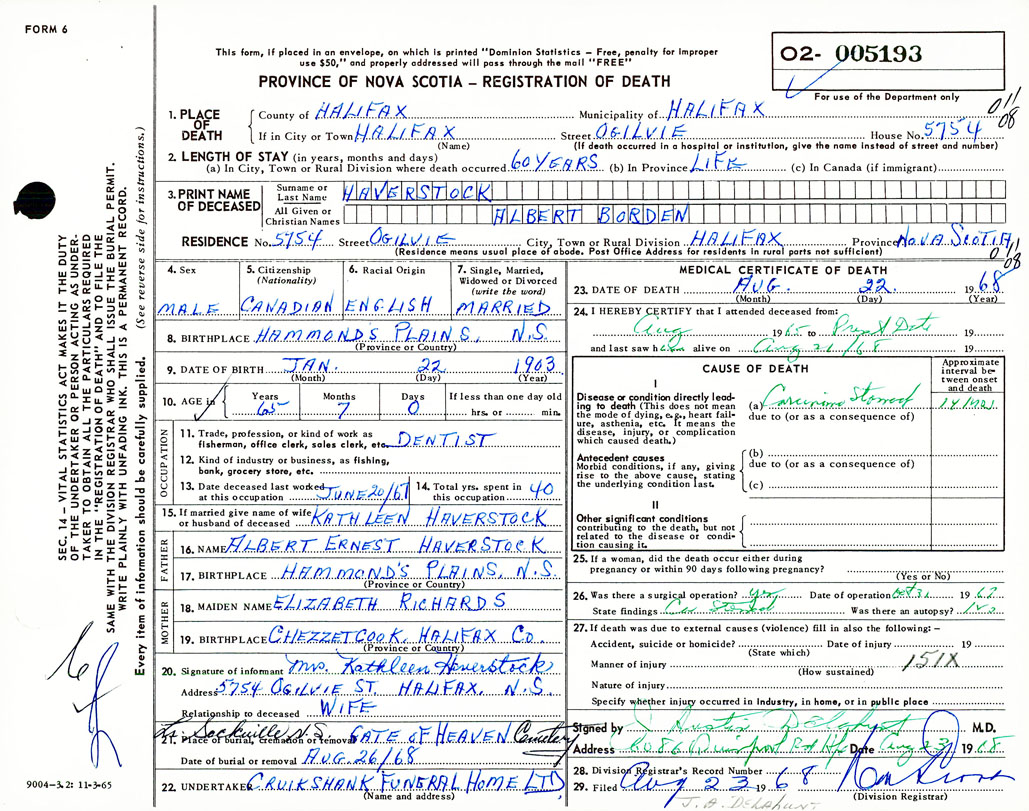 FORM 6
This form, if placed in an envelope, on which is printed "Dominion Statistics – Free, penalty for improper
use $50," and properly addressed will pass through the mail "FREE"
PROVINCE OF NOVA SCOTIA – REGISTRATION OF DEATH
02- 005193
For use of the Department only
011
08
1. PLACE OF DEATH
County of HALIFAX Municipality of HALIFAX
If in City or Town HALIFAX Street OGILVIE House No. 5754
(Name) (If death occurred in a hospital or institution, give the name instead of street and number)
2. LENGTH OF STAY (in years, months and days)
(a) In City, Town or Rural Division where death occurred 60 YEARS (b) In Province LIFE (c) In Canada (if immigrant)
3. PRINT NAME OF DECEASED
Surname or Last Name HAVERSTOCK
All Given or Christian Names ALBERT BORDEN
RESIDENCE No. 5754 Street OGILVIE City, Town or Rural Division HALIFAX Province NOVA SCOTIA
(Residence means usual place of abode. Post Office Address for residents in rural parts not sufficient)
011
08
4. Sex MALE
5. Citizenship (Nationality) CANADIAN
6. Racial Origin ENGLISH
7. Single, Married, Widowed or Divorced (write the word) MARRIED
8. BIRTHPLACE HAMMOND'S PLAINS, N.S.
(Province or Country)
9. DATE OF BIRTH JAN. 22 1903
(Month) (Day) (Year)
10. AGE in Years Months Days If less than one day old
65 7 0 hrs. or min.
OCCUPATION
11. Trade, profession, or kind of work as
fisherman, office clerk, sales clerk, etc. DENTIST
12. Kind of industry or business, as fishing,
bank, grocery store, etc.
13. Date deceased last worked
at this occupation JUNE 20/67
14. Total yrs. spent in
this occupation 40
15. If married give name of wife
or husband of deceased KATHLEEN HAVERSTOCK
FATHER
16. NAME ALBERT ERNEST HAVERSTOCK
17. BIRTHPLACE HAMMOND'S PLAINS, N.S.
(Province or Country)
MOTHER
18. MAIDEN NAME ELIZABETH RICHARDS
19. BIRTHPLACE CHEZZETCOOK. HALIFAX CO.
(Province or Country)
20. Signature of informant Mrs. Kathleen Haverstock
Address 5754 OGILVIE ST. HALIFAX, N.S.
Relationship to deceased WIFE
Lr. Sackville N.S.
21. Place of burial, cremation or removal GATE OF HEAVEN Cemetery
Date of burial or removal AUG. 26/68
22. UNDERTAKER CRUIKSHANK FUNERAL HOME LTD
(Name and address)
MEDICAL CERTIFICATE OF DEATH
23. DATE OF DEATH AUG. 22 1968
(Month) (Day) (Year)
24. I HEREBY CERTIFY that I attended deceased from:
Aug 1965 to Present Date 19
and last saw him alive on Aug 21/68 19
CAUSE OF DEATH
Approximate interval between onset and death
I
Disease or condition directly leading to death (This does not
mean the mode of dying, e.g., heart failure, asthenia, etc. It means the
disease, injury, or complication
which caused death.)
(a) Carcinoma Stomach
due to (or as a consequence of)
Antecedent causes
Morbid conditions, if any, giving
rise to the above cause, stating
the underlying condition last.
(b)
due to (or as a consequence of)
(c)
II
Other significant conditions
contributing to the death, but not
related to the disease or condition causing it.
25. If a woman, did the death occur either during
pregnancy or within 90 days following pregnancy?
(Yes or No)
26. Was there a surgical operation? yes Date of operation 1967
State findings Ca Stomach Was there an autopsy? No
27. If death was due to external causes (violence) fill in also the following: –
Accident, suicide or homicide? Date of injury 19
(State which)
Manner of injury 151X
(How sustained)
Nature of injury
Specify whether injury occurred in Industry, in home, or in public place
Signed by J. Austin Delahunt M.D.
Address 6086 Date Aug 23 1968
28. Division Registrar's Record Number
29. Filed Aug 23 1968
(Division Registrar)
J. A. DELAHUNT
SEC. 14 – VITAL STATISTICS ACT MAKES IT THE DUTY
OF THE UNDERTAKER OR PERSON ACTING AS UNDER-
TAKER TO OBTAIN ALL THE PARTICULARS REQUIRED
IN THE "REGISTRATION OF DEATH" AND TO FILE THE
SAME WITH THE DIVISION REGISTRAR WHO SHALL ISSUE THE BURIAL PERMIT.
WRITE PLAINLY WITH UNFADING INK. THIS IS A PERMANENT RECORD.
Every item of information should be carefully supplied. (See reverse side for instructions.)
9004-3.2: 11-3-65